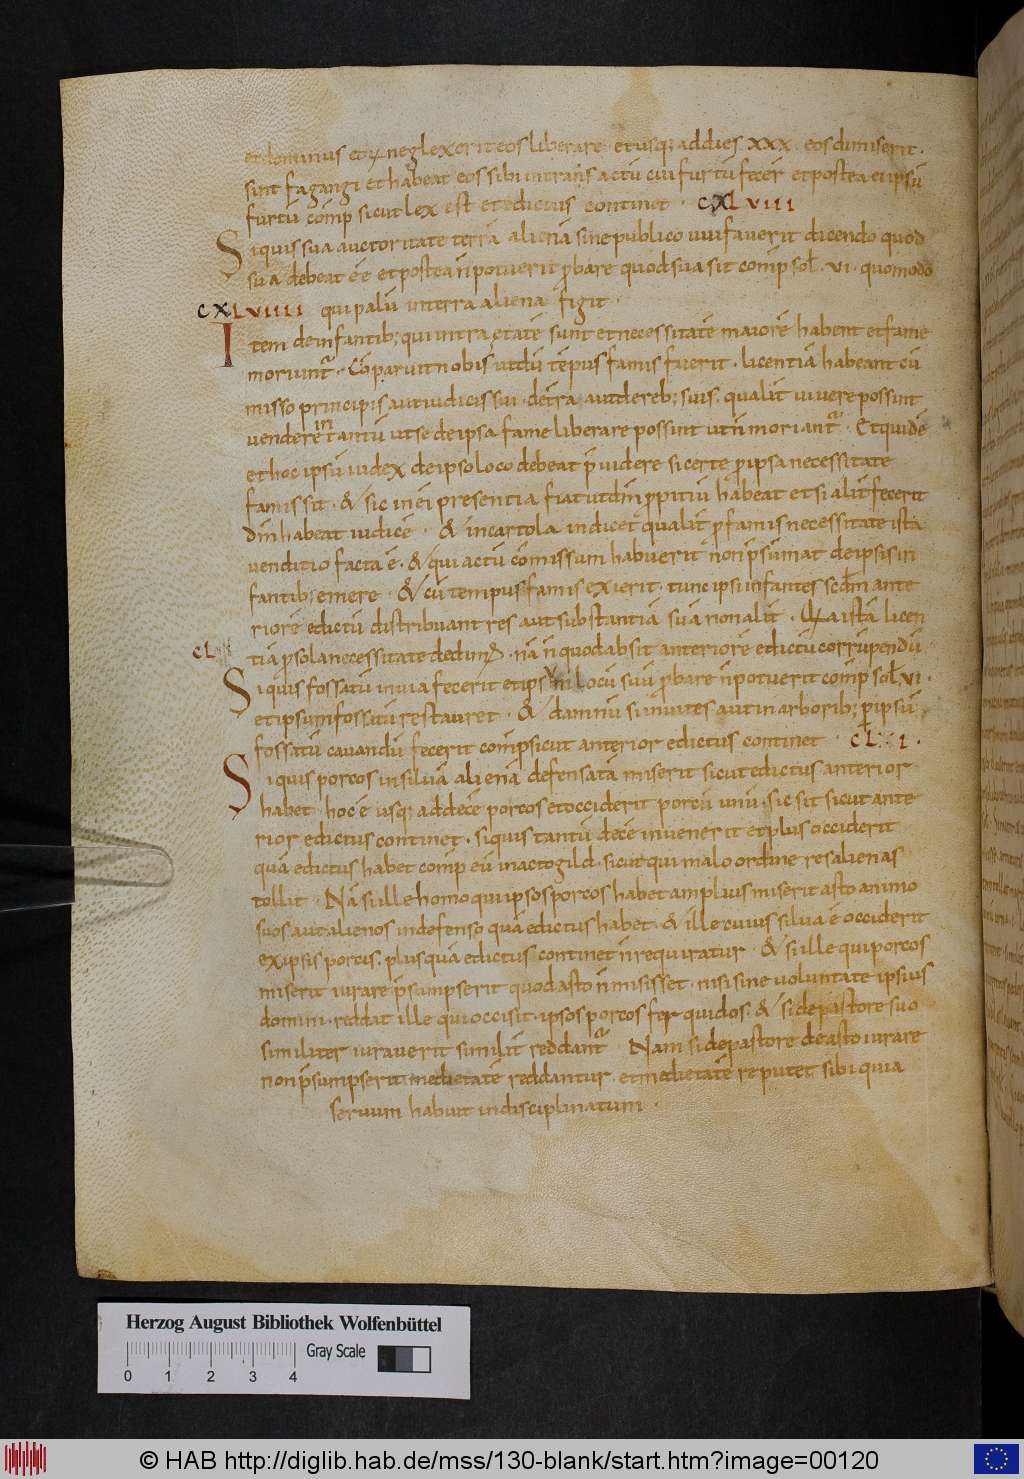 et dominus eor neglexerit eos liberare · et usq; ad dies XXX · eos dimiserit ·
sint fagangi et habeat eos sibi in transactū cui furtū fecer et postea ei ipsū
furtū comp sicut lex est et edictus continet · CXLVIII
Si quis sua auctoritate terrā alienā sine publico uuifauerit dicendo quod
suā debeat eē et postea n̄ potuerit ꝓbare quod sua sit comp sol̄ · VI · quomodo
CXLVIIII qui palū in terra aliena figit ·
Item de infantib; qui intra ętatē sunt et necessitatē maiorē habent et fame
moriunt̄ · Cōparuit nobis ut dū tempus famis fuerit · licentiā habeant cū
misso principis aut iudicis sui · de tra aut de reb; suis · qualit uiuere possint
uendere intantū ut se de ipsa fame liberare possint ut n̄ moriant̄ · Et quidē
et hoc ipsū iudex de ipso loco debeat p̄uidere si certe ꝓ ipsa necessitate
famis sit · & sic in ei presentia fiat ut dīn ꝓpitiū habeat et si alit fecerit
dīn habeat iudicē · & in cartola indicet qualit ꝓ famis necessitate ista
uenditio facta ē · & qui actū cōmissum habuerit non p̄sūmat de ipsis in
fantib; emere · & cū tempus famis exierit · tunc ipsi infantes scd̄m ante
riorē edictū distribuant res aut substantiā suā non alit · Quia istā licen
CL tiā ꝓ sola necessitate dedim; · nā n̄ quod absit anteriorē edictū corrūpendū
Si quis fossatū in uia fecerit et ips locū suū ꝓbare n̄ potuerit comp sol̄ VI ·
et ipsum fossatū restauret · & damnū si in uites aut in arborib; ꝑ ipsū
fossatū cauandū fecerit comp sicut anterior edictus continet · CLI ·
Si quis porcos in siluā alienā defensatā miserit sicut edictus anterior
habet · hoc ē usq; ad decē porcos et occiderit porcū unū · sic sit sicut ante
rior edictus continet · si quis tantū decē inuenerit et plus occiderit
quā edictus habet comp eū in actogild · sicut qui malo ordine res alienas
tollit · Nā si ille homo qui ipsos porcos habet amplius miserit asto animo
suos aut alienos in defenso quā edictus habet · & ille cuius silua ē occiderit
ex ipsis porcis · plus quā edictus continet n̄ requiratur · & si ille qui porcos
miserit iurare p̄sumpserit quod asto n̄ misisset · nisi sine uoluntate ipsius
domini · reddat ille qui occisit · ipsos porcos ferquidos · & si de pastore suo
similiter iurauerit similit reddant̄ · Nam si de pastore de asto iurare
non p̄sumpserit medietatē reddantur · et medietatē reputet sibi quia
seruum habuit indisciplinatum ·
Herzog August Bibliothek Wolfenbüttel
Gray Scale
0 1 2 3 4
© HAB http://diglib.hab.de/mss/130-blank/start.htm?image=00120